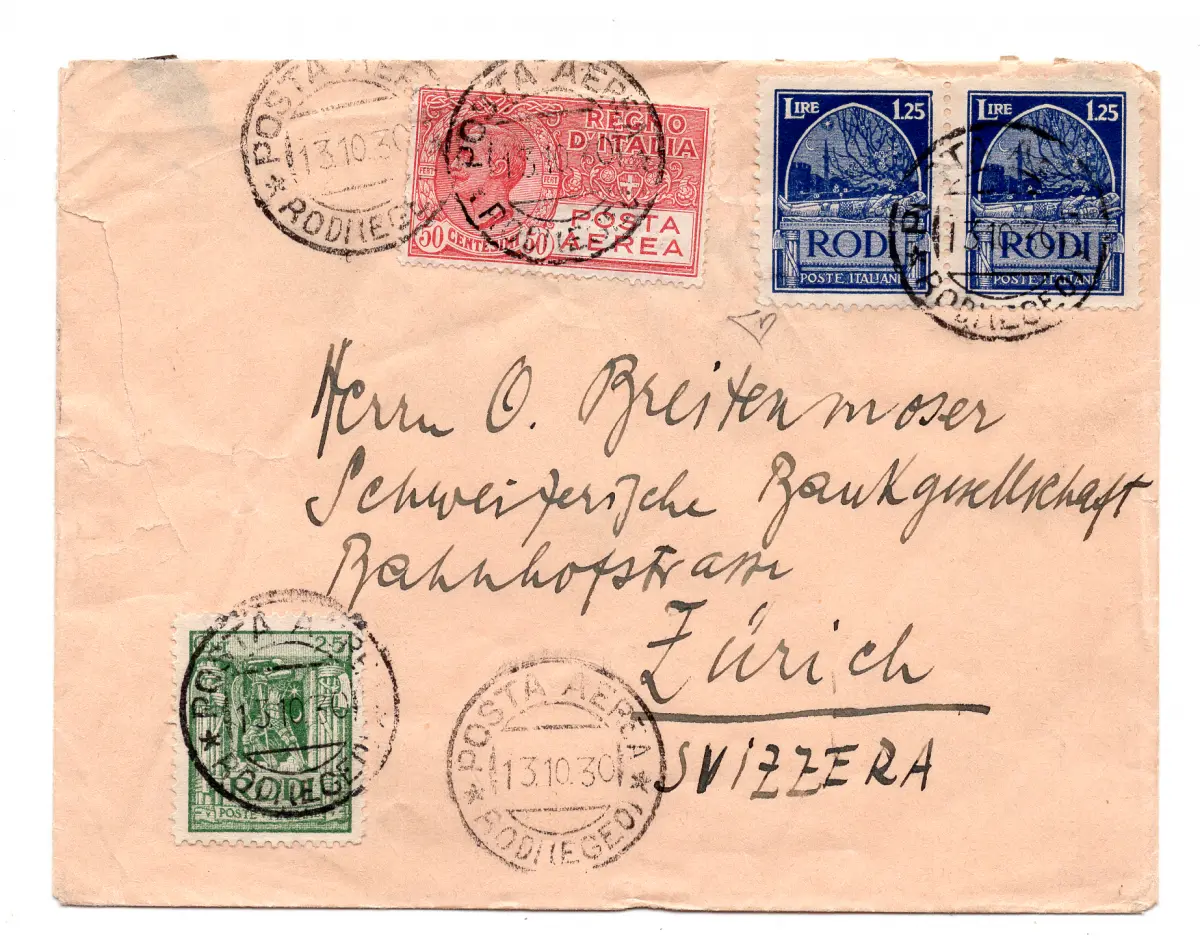 POSTA AEREA
13.10.30
RODI (EGEO)
REGNO
D'ITALIA
50 CENTESIMI 50
POSTA
AEREA
POSTA AEREA
RODI (EGEO)
LIRE 1.25
RODI
POSTE ITALIANE
LIRE 1.25
RODI
POSTE ITALIANE
13.10.30
RODI (EGEO)
Herrn O. Breitenmoser
Schweizerische Bankgesellschaft
Bahnhofstrasse
Zürich
SVIZZERA
25
POSTE
POSTA AEREA
13.10.30
RODI (EGEO)
POSTA AEREA
13.10.30
RODI (EGEO)